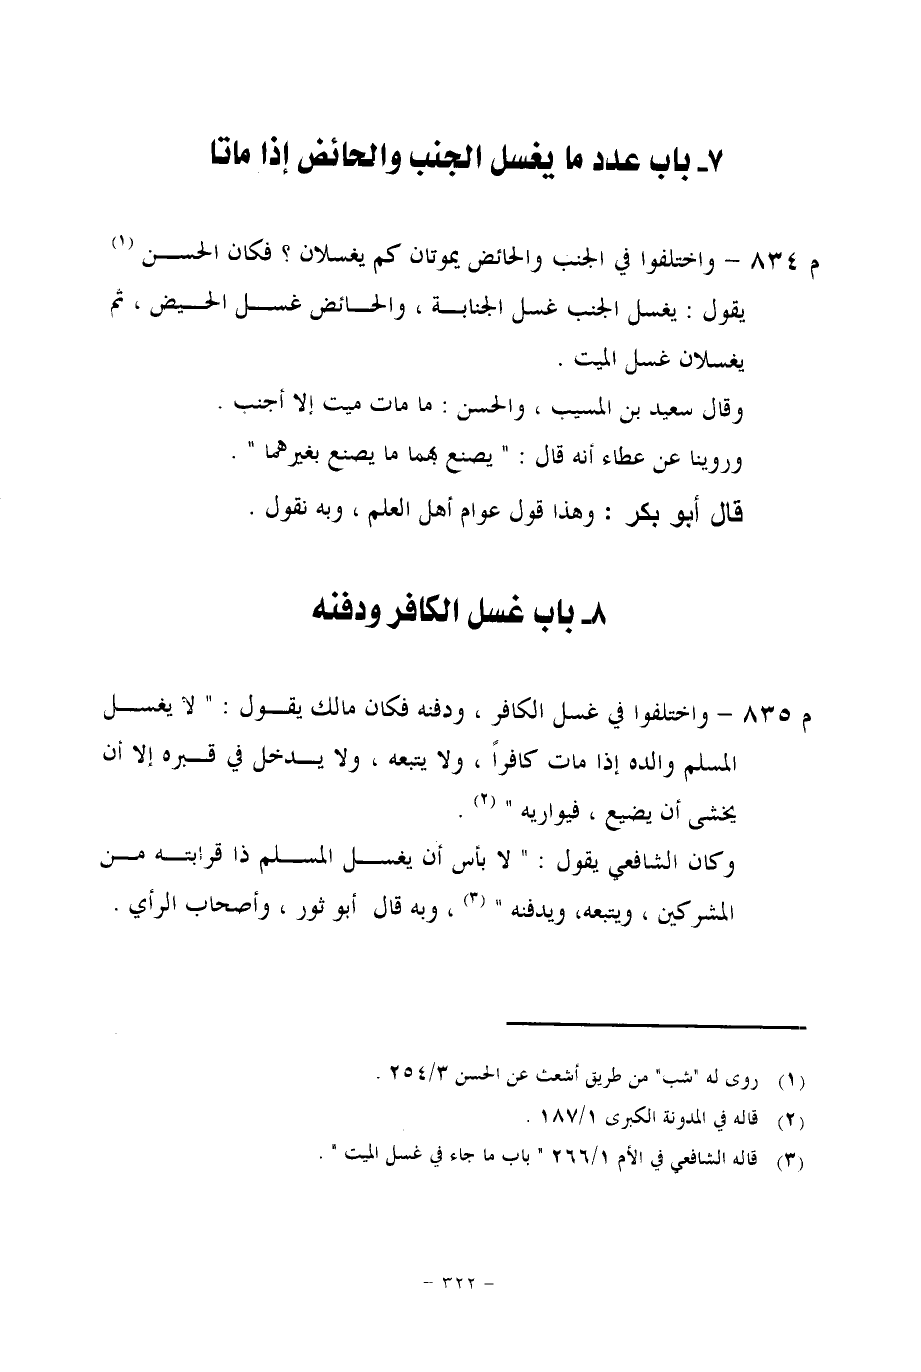 ٧ـ باب عدد ما يغسل الجنب والحائض إذا ماتا
م ٨٣٤ – واختلفوا في الجنب والحائض يموتان كم يغسلان ؟ فكان الحســـن (١)
يقول : يغسل الجنب غسل الجنابـــة ، والحـــائض غســـل الحـــيض ، ثم
يغسلان غسل الميت .
وقال سعيد بن المسيب ، والحسن : ما مات ميت إلا أجنب .
وروينا عن عطاء أنه قال : " يصنع بهما ما يصنع بغيرهما " .
قال أبو بكر : وهذا قول عوام أهل العلم ، وبه نقول .
٨ـ باب غسل الكافر ودفنه
م ٨٣٥ – واختلفوا في غسل الكافر ، ودفنه فكان مالك يقـــول : " لا يغســـل
المسلم والده إذا مات كافراً ، ولا يتبعه ، ولا يـــدخل في قـــبره إلا أن
يخشى أن يضيع ، فيواريه " (٢) .
وكان الشافعي يقول : " لا بأس أن يغســـل المســـلم ذا قرابتـــه مـــن
المشركين ، ويتبعه، ويدفنه " (٣) ، وبه قال أبو ثور ، وأصحاب الرأي .
(١) روى له "شب" من طريق أشعث عن الحسن ٢٥٤/٣ .
(٢) قاله في المدونة الكبرى ١٨٧/١ .
(٣) قاله الشافعي في الأم ٢٦٦/١ " باب ما جاء في غسل الميت " .
– ٣٢٢ –